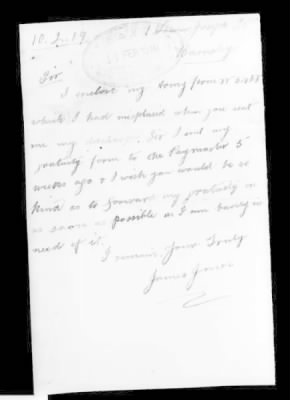 10.2.19
Joseph St
Barnsley
Sir
I enclose my Army form
which I had misplaced when you sent
me my discharge. Sir I sent my
gratuity form to the Paymaster 5
weeks ago & I wish you would be so
kind as to forward my gratuity on
as soon as possible as I am badly in
need of it.
I remain Yours Truly
James Jones